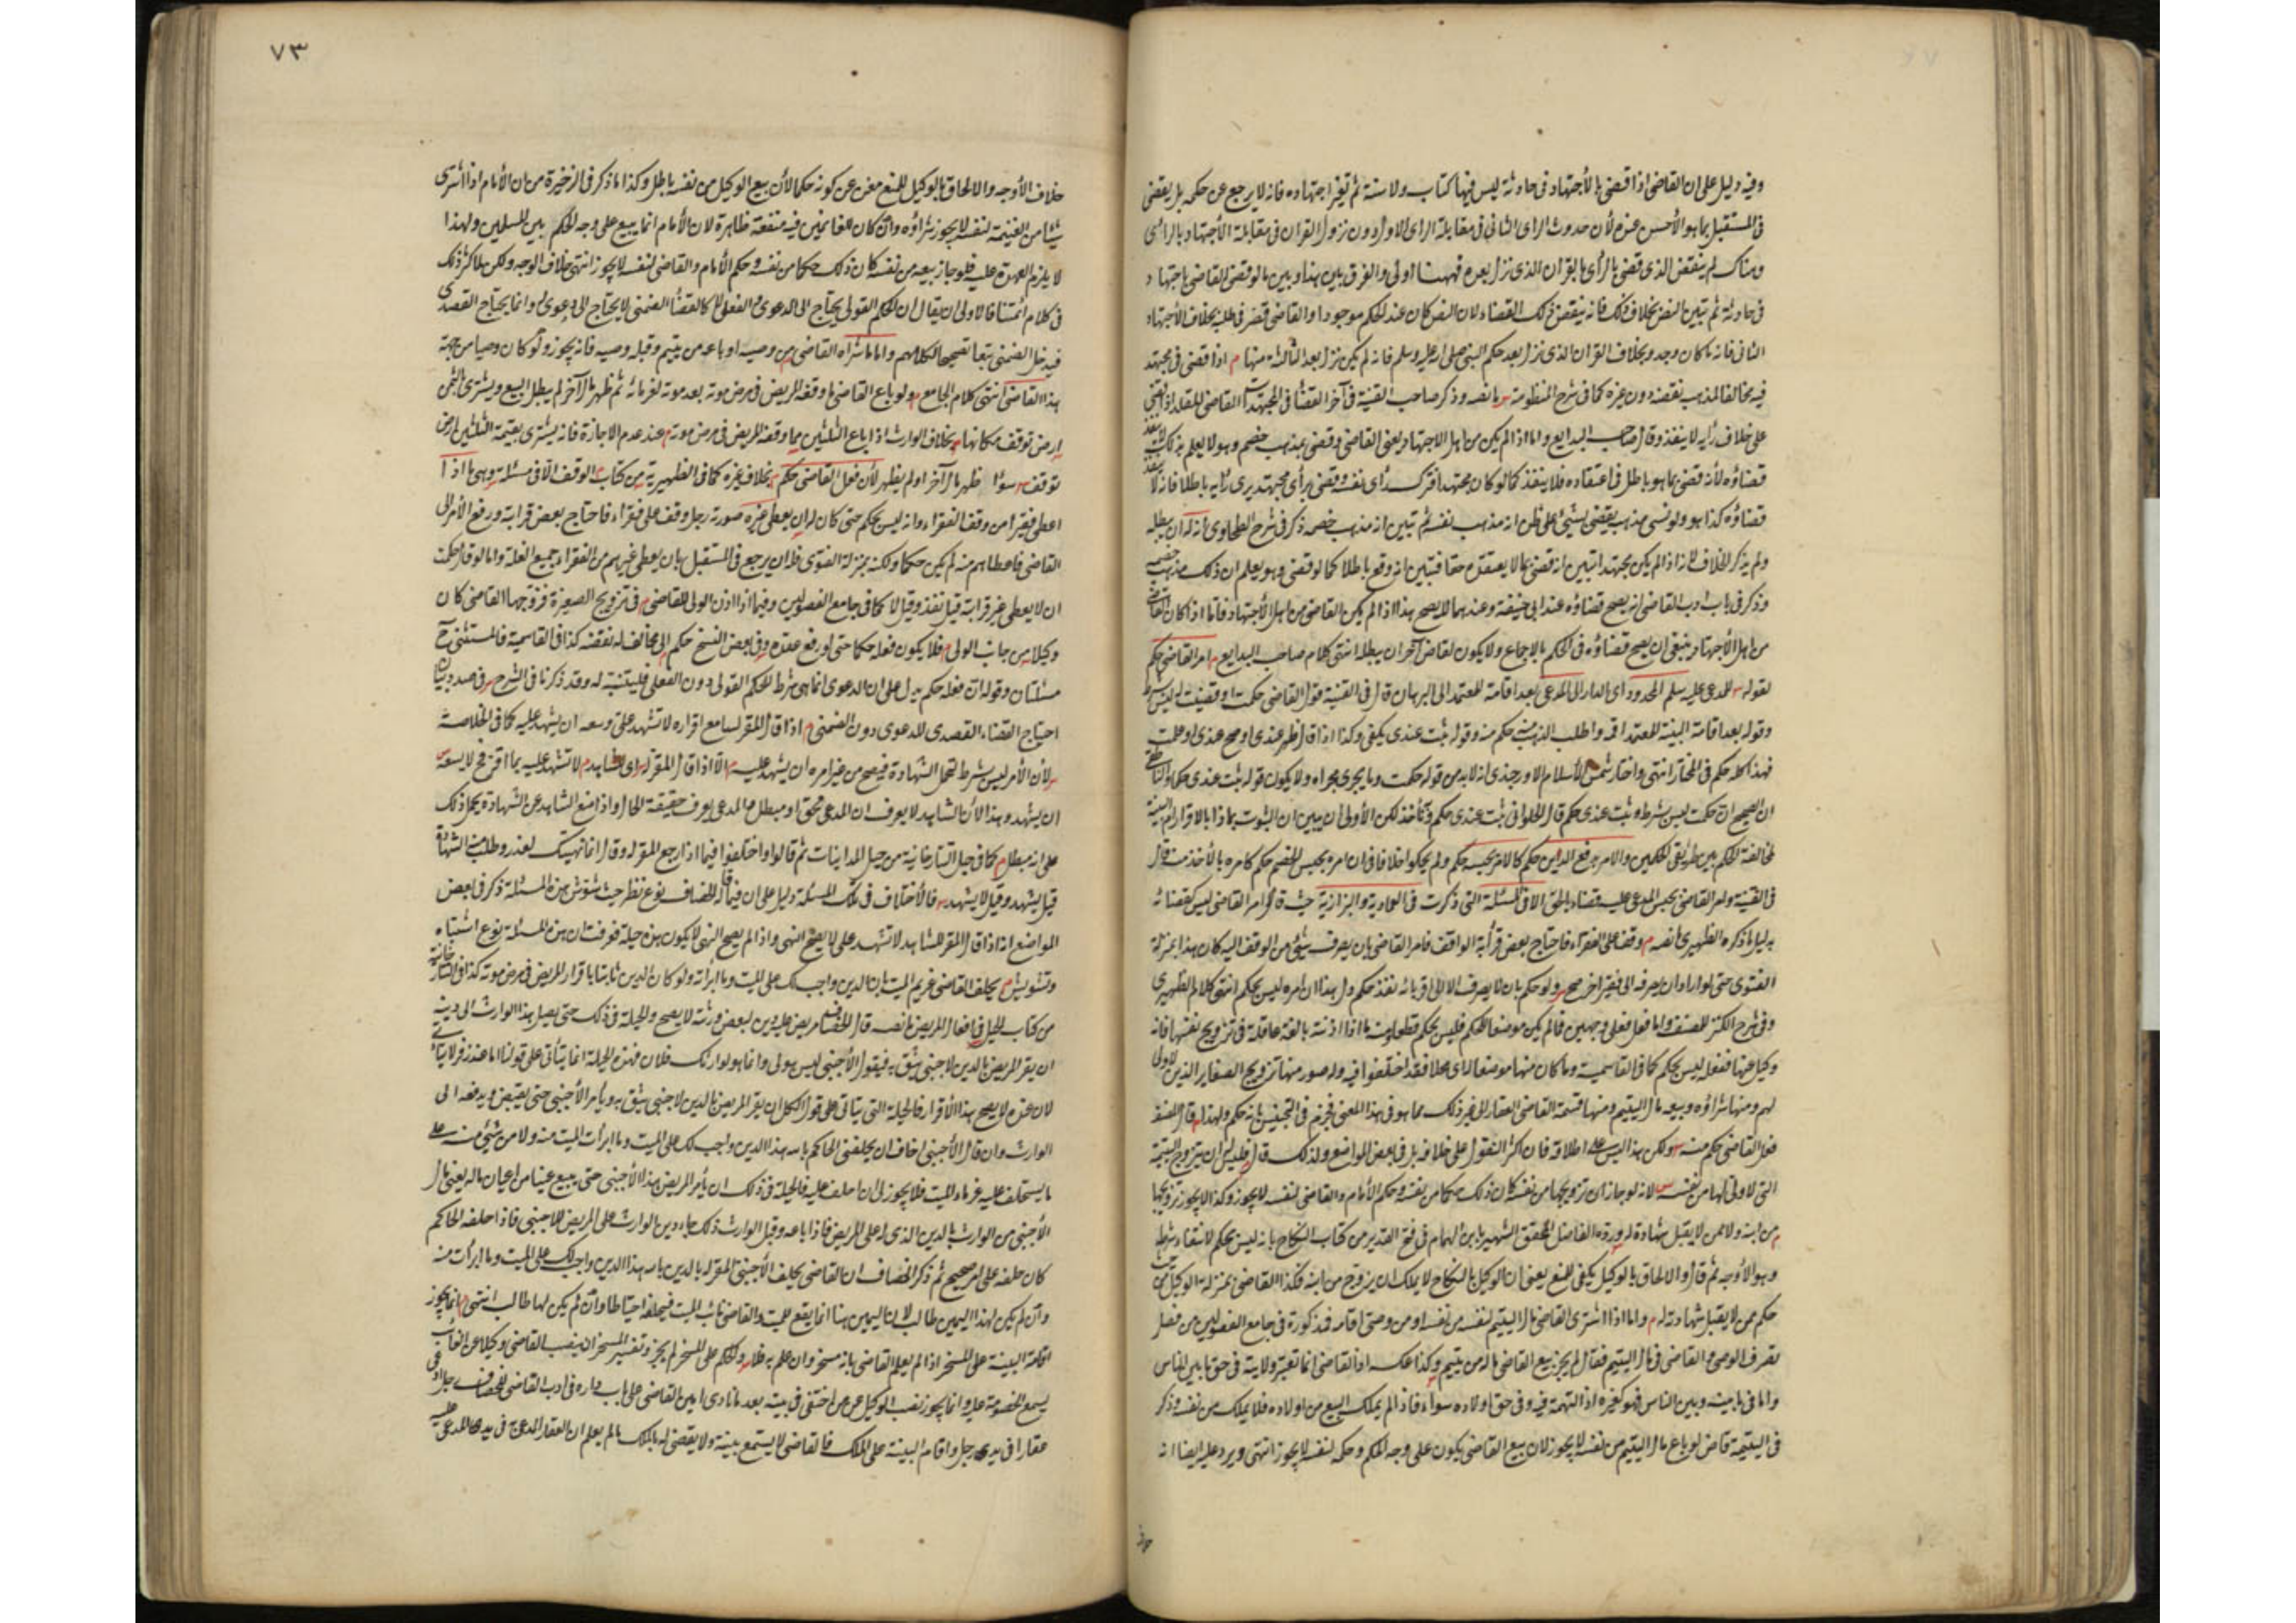 وفيه دليل على ان القاضى اذا قضى بالأجتهاد فى حادثة ليس فيها كتاب ولا سنة ثم تغير اجتهاده فانه لا يرجع عن حكمه بل يقضى
فى المستقبل بما هو الأحسن عنده لأن حدوث الراى الثانى فى مقابلة الراى الاول دون نزول القران فى مقابلة الأجتهاد بالرائ
وهناك لم ينقض الذى قضى بالرأى بالقران الذى نزل بعده فههنا اولى والفرق بين هذا وبين ما لو قضى القاضى باجتهاد
فى حادثة ثم تبين النص بخلاف ذلك فانه ينقض ذلك القضاء لان النص كان عند الحكم موجودا والقاضى قصر فى طلبه بخلاف الأجتهاد
الثانى فانه ما كان وجد وبخلاف القران الذى نزل بعد حكم النبى صلى الله عليه وسلم فانه لم يكن نزل بعد الثالثة منها م اذا قضى فى مجتهد
فيه مخالفا لمذهبه نقضه دون غيره كما فى شرح المنظومة س ما نصه وذكر صاحب القنية فى آخر القضا فى المجتهدات القاضى المقلد اذا قضى
على خلاف رأيه لا ينفذ وقال صاحب البدايع واما اذا لم يكن من اهل الاجتهاد يعنى القاضى وقضى بمذهب خصم وهو لا يعلم بذلك لا ينفذ
قضاؤه لأنه قضى بما هو باطل فى اعتقاده فلا ينفذ كما لو كان مجتهدا فترك رأى نفسه وقضى برأى مجتهد يرى رأيه باطلا فانه لا ينفذ
قضاؤه كذا هو ولو نسى مذهبه فقضى بشئ على ظن انه مذهب نفسه ثم تبين انه مذهب خصمه ذكر فى شرح الطحاوى انه له ان يبطله
ولم يذكر الخلاف لانه اذا لم يكن مجتهدا تبين انه قضى بما لا يعتقده حقا فتبين انه وقع باطلا كما لو قضى وهو يعلم ان ذلك مذهب خصمه
وذكر فى باب ادب القاضى انه يصح قضاؤه عند ابى حنيفة وعندهما لا يصح هذا اذا لم يكن القاضى من اهل الأجتهاد فاما اذا كان القاضى
من اهل الأجتهاد ينبغى ان يصح قضاؤه فى الحكم بالاجماع ولا يكون لقاض آخر ان يبطله انتهى كلام صاحب البدايع م امر القاضى حكم
لقوله س للمدعى عليه سلم المحدود اى الدار الى المدعى بعد اقامة المعتمد الى البرهان قال فى القنية قول القاضى حكمت او قضيت له ليس شرط
وقوله بعد اقامة البينة للمعتمد اقم واطلب الذهب منه حكم منه وقوله ثبت عندى يكفى وكذا اذا قال ظهر عندى او صح عندى او علمت
فهذا كله حكم فى المختار انتهى واختار شمس الأسلام الاوزجندى انه لا بد من قوله حكمت وما يجرى مجراه ولا يكون قوله ثبت عندى حكما
ان الصحيح ان حكمت ليس بشرط وثبت عندى حكم قال الحلوانى ثبت عندى حكم وبه نأخذ لكن الأولى ان يبين ان الثبوت بماذا بالاقرار ام البينة
لمخالفة الحكم بين طريقى الحكمين والامر برفع الدين حكم كالامر بحبسه حكم ولم يحكوا خلافا فى ان امره بحبس الخصم حكم كامره بالأخذ منه قال
فى القنية وامر القاضى بحبس المدعى عليه قضاء بالحق الا فى المسئلة التى ذكرت فى العمادية والبزازية حيث قالوا امر القاضى ليس كقضائه
بدليل ما ذكره الظهيرى ما نصه م وقف على الفقراء فاحتاج بعض قرابة الواقف فامر القاضى بان يصرف شئ من الوقف اليه كان هذا بمنزلة
الفتوى حتى لو اراد ان يصرفه الى فقير اخر صح ولو حكم بان لا يصرف الا الى اقربائه نفذ حكم دل هذا ان امره ليس بحكم انتهى كلام الظهيرى
وفى شرح الكنز للمصنف واما فعل فعلى وجهين فما لم يكن موضعا للحكم فليس بحكم قطعا وليت ما اذا اذنته بالغة عاقلة فى تزويج نفسها فانه
وكيل عنها ففعله ليس بحكم كما فى القاسمية وما كان منها موضعا للاى محلا فقد اختلفوا فيه وله صور منها تزويج الصغاير الذين لاولى
لهم ومنها شراؤه وبيعه مال اليتيم ومنها قسمة القاضى العقار الى غير ذلك مما هو فى هذا المعنى فجزم فى التجنيس بانه حكم ولهذا م قال المصنف
فعل القاضى حكم منه س ولكن هذا ليس على اطلاقه فان اكثر النقول على خلافه بل فى بعض المواضع ولذلك قال فليس له ان يتزوج اليتيمة
التى لا ولى لها من نفسه س لانه لو جاز ان تزويجها من نفسه كان ذلك حكما من نفسه وحكم الأمام والقاضى لنفسه لا يجوز وكذا لا يجوز تزويجها
م من ابنه ولا ممن لا يقبل شهادة له ورده الفاضل المحقق الشهير بابن الهمام فى فتح القدير من كتاب النكاح بانه ليس بحكم لانتفاء شرطه
وهو الاوجه ثم قال والالحاق بالوكيل يكفى للمنع يعنى ان الوكيل بالنكاح لا يملك ان يزوج من ابنه فكذا القاضى بمنزلة الوكيل
حكم ممن لا يقبل شهادته له م واما اذا اشترى القاضى مال اليتيم لنفسه من نفسه او من وصى اقامه فمذكورة فى جامع الفصولين من فصل
تصرف الوصى والقاضى فى مال اليتيم فقال لم يجز بيع القاضى ماله من يتيم وكذا عكسه اذ القاضى انما تعتبر ولايته فى حق ما بين الناس
واما فى ما بينه وبين الناس فهو كغيره اذ التهمة فيه وفى حق اولاده سواء فاذا لم يملك البيع من اولاده فلا يملك من نفسه وذكر
فى اليتيمة قاض لو باع مال اليتيم من نفسه لا يجوز لان بيع القاضى يكون على وجه الحكم وحكمه لنفسه لا يجوز انتهى ويرد عليه ايضا انه
٧٣
خلاف الأوجه والالحاق بالوكيل للمنع مغن عن كونه حكما لأن بيع الوكيل من نفسه باطل وكذا ما ذكر فى الذخيرة من ان الأمام اذا اشترى
شيئا من الغنيمة لنفسه لا يجوز شراؤه وان كان للغانمين فيه منفعة ظاهرة لان الأمام انما يبيع على وجه الحكم بين المسلمين ولهذا
لا يلزم العهدة عليه فلو جاز بيعه من نفسه كان ذلك حكما من نفسه وحكم الأمام والقاضى لنفسه لا يجوز انتهى خلاف الوجه ولكن هكذا كثر ذلك
فى كلام ائمتنا فالاولى ان يقال ان الحكم القولى يحتاج الى الدعوى والفعلى لا كالقضاء الضمنى لا يحتاج الى دعوى له وانما يحتاج القصدى
فيدخل الضمنى تبعا تصحيحا لكلامهم واما ما شراه القاضى من وصيه او باعه من يتيم وقبله وصيه فانه يجوز ولو كان وصيا من جهة
هذا القاضى انتهى كلام الجامع م ولو باع القاضى ما وقفه المريض فى مرض موته بعد موته لغرمائه ثم ظهر مال آخر لم يبطل البيع ويشترى بالثمن
ارض توقف مكانها م بخلاف الوارث اذا باع الثلثين مما وقفه المريض فى مرض موته م عند عدم الاجازة فانه يشترى بقيمة الثلثين ارض
توقف س سواء ظهر مال آخر او لم يظهر لأن فعل القاضى حكم م بخلاف غيره كما فى الظهيرية من كتاب الوقف الا فى مسئلة وهى ما اذا
اعطى فقيرا من وقف الفقراء وانه ليس بحكم حتى كان له ان يعطى غيره صورته رجل وقف على فقراء فاحتاج بعض قرابته ورفع الأمر الى
القاضى فاعطاهم منه لم يكن حكما ولكنه بمنزلة الفتوى فله ان يرجع فى المستقبل بان يعطى غيرهم من الفقراء جميع الغلة واما لو قال حكمت
ان لا يعطى غير قرابته قيل نفذ وقيل لا كما فى جامع الفصولين وفيما اذا اذن الولى للقاضى م فى تزويج الصغيرة فزوجها القاضى كان
وكيلا من جانب الولى م فلا يكون فعله حكما حتى لو رفع عقده وفى بعض النسخ حكم الى مخالف له نقضه كذا فى القاسمية فالمستثنى ح
مسئلتان وقوله ان فعله حكم يدل على ان الدعوى انما هى شرط للحكم القولى دون الفعلى فليتنبه له وقد ذكرنا فى الشرح س فى صدد بيان
احتياج القضاء القصدى للدعوى دون الضمنى م اذا قال المقر لسامع اقراره لا تشهد على وسعه ان يشهد عليه كما فى الخلاصة
س لأن الأمر ليس بشرط لتحمل الشهادة فيصح من غير امره ان يشهد عليه م الا اذا قال المقر له س اى للشاهد م لا تشهد عليه بما اقر فح لا يسعه س
ان يشهد وهذا الأن الشاهد لا يعرف ان المدعى محق او مبطل م المدعى يعرف حقيقة الحال واذا منع الشاهد عن الشهادة يحمل ذلك
على انه مبطل م كما فى حيل التتارخانية من حيل المداينات ثم قالوا واختلفوا فيما اذا رجع المقر له وقال انما نهيتك لعذر وطلب منه الشهادة
قيل يشهد وقيل لا يشهد س فالأختلاف فى تلك المسئلة دليل على ان فيما قاله الخصاف نوع نظر حيث شوش هذه المسئلة ذكر فى بعض
المواضع انه اذا قال المقر للشاهد لا تشهد على لا يصح النهى واذا لم يصح النهى لا يكون هذه حيلة فعرفت ان هذه المسئلة نوع اشتباه
وتشويش م يحلف القاضى غريم الميت بان الدين واجب لك على الميت وما ابرأته ولو كان الدين ثابتا باقرار المريض فى مرض موته كذا فى التتارخانية
من كتاب الحيل فى افعال المريض ما نصه قال الخصاف مريض عليه دين لبعض ورثته لا يصح والحيلة فى ذلك حتى يصل هذا الوارث الى دينه
ان يقر المريض بالدين لاجنبى يثق به فيقول الأجنبى ليس هو لى وانما هو لوارثك فلان فهذه الحيلة انما يتأتى على قولنا اما عند زفر لا يتأتى
لان عنده لا يصح بهذا الأقرار فالحيلة التى يتاتى على قول الكل ان يقر المريض بالدين لاجنبى يثق به ويأمر الأجنبى حتى يقبض ويدفعه الى
الوارث وان قال الأجنبى اخاف ان يحلفنى الحاكم بالله هذا الدين واجب لك على الميت وما ابرأت الميت منه ولا من شئ منه على
ما يستحلف عليه غرماء الميت فلا يجوز لى ان احلف عليه فالحيلة فى ذلك ان يأمر المريض هذا الأجنبى حتى يبيع عينا من اعيان ماله يعنى مال
الأجنبى من الوارث بالدين الذى له على المريض فاذا باعه وقبل الوارث ذلك جاء دين الوارث على المريض للاجنبى فاذا حلفه الحاكم
كان حلفه على امر صحيح ثم ذكر الخصاف ان القاضى يحلف الأجنبى المقر له بالدين بالله هذا الدين واجب لك على الميت وما ابرأت منه
وان لم يكن لهذا اليمين طالب لان اليمين هنا انما يقع للميت والقاضى نائب الميت فيحلفه احتياطا وان لم يكن لها طالب انتهى م انما يجوز
اقامة البينة على المسخر اذا لم يعلم القاضى بانه مسخر وان علم به فلا س والحكم على المسخر لم يجز وتفسير المسخر ان ينصب القاضى وكيلا عن الغائب
يسمع الخصومة عليه وانما يجوز نصب الوكيل عمن اختفى فى بيته بعد ما نادى امين القاضى على باب داره فى ادب القاضى للخصاف رجل ادعى
عقارا فى يدى رجل واقام البينة على الملك فالقاضى لا يستمع بينة ولا يقضى له بالملك ما لم يعلم ان العقار المدعى فى يد المدعى عليه